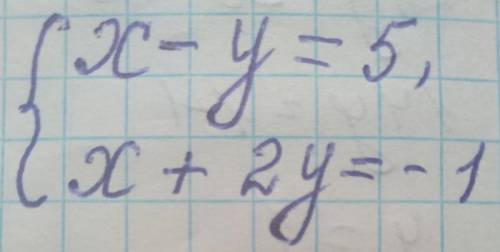 x - y = 5,
x + 2y = -1